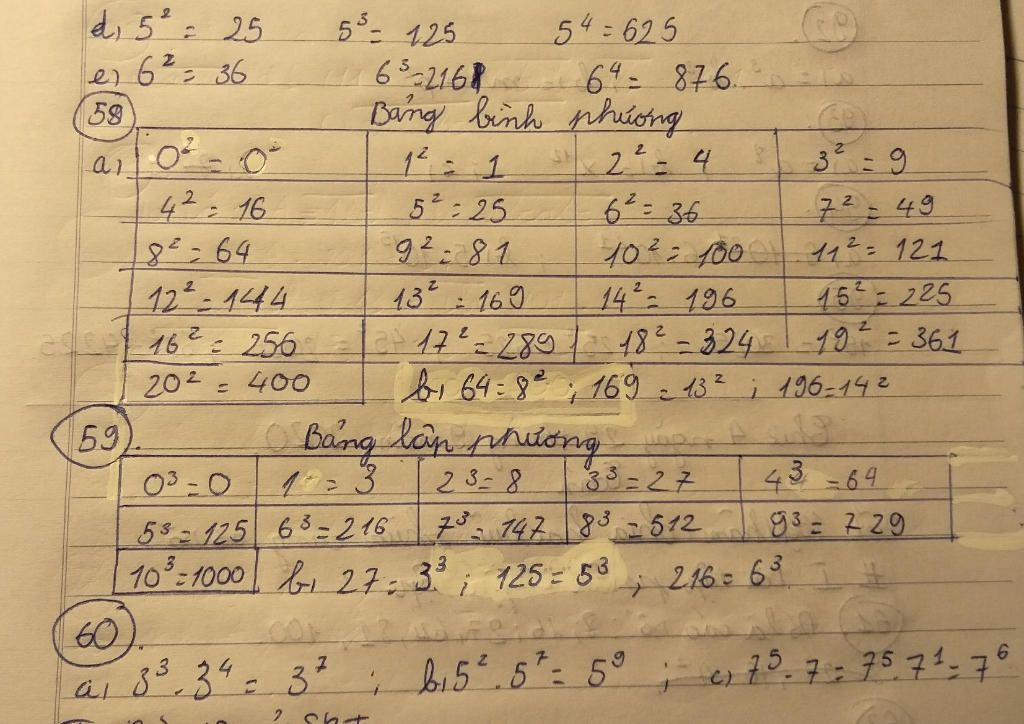 d, 5² = 25 5³ = 125 5⁴ = 625
e, 6² = 36 6³ = 216 6⁴ = 876
58 Bảng bình phương
a, 0² = 0² 1² = 1 2² = 4 3² = 9
4² = 16 5² = 25 6² = 36 7² = 49
8² = 64 9² = 81 10² = 100 11² = 121
12² = 144 13² = 169 14² = 196 15² = 225
16² = 256 17² = 289 18² = 324 19² = 361
20² = 400 b, 64 = 8² ; 169 = 13² ; 196 = 14²
59. Bảng lập phương
0³ = 0 1 = 3 2³ = 8 3³ = 27 4³ = 64
5³ = 125 6³ = 216 7³ = 147 8³ = 512 9³ = 729
10³ = 1000 b, 27 = 3³ ; 125 = 5³ ; 216 = 6³
60.
a, 3³ . 3⁴ = 3⁷ ; b, 5² . 5⁷ = 5⁹ ; c, 7⁵ . 7 = 7⁵ . 7¹ = 7⁶